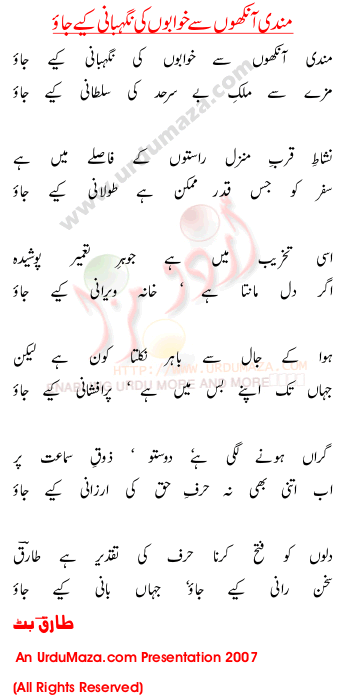 مندی آنکھوں سے خوابوں کی نگہبانی کیے جاؤ
مندی آنکھوں سے خوابوں کی نگہبانی کیے جاؤ
مزے سے ملکِ بے سرحد کی سلطانی کیے جاؤ
نشاطِ قربِ منزل راستوں کے فاصلے میں ہے
سفر کو جس قدر ممکن ہے طولانی کیے جاؤ
اسی تخریب میں ہے جوہرِ تعمیر پوشیدہ
اگر دل مانتا ہے ، خانہ ویرانی کیے جاؤ
ہوا کے جال سے باہر نکلتا کون ہے لیکن
جہاں تک اپنے بس میں ہے ، پرافشانی کیے جاؤ
گراں ہونے لگی ہے، دوستو ، ذوقِ سماعت پر
اب اتنی بھی نہ حرفِ حق کی ارزانی کیے جاؤ
دلوں کو فتح کرنا حرف کی تقدیر ہے طارقؔ
سخن رانی کیے جاؤ، جہاں بانی کیے جاؤ
طارق بٹ
An UrduMaza.com Presentation 2007
(All Rights Reserved)
www.urdumaza.com
اردو مزا
HTTP://WWW.URDUMAZA.COM
SHARING URDU MORE AND MORE